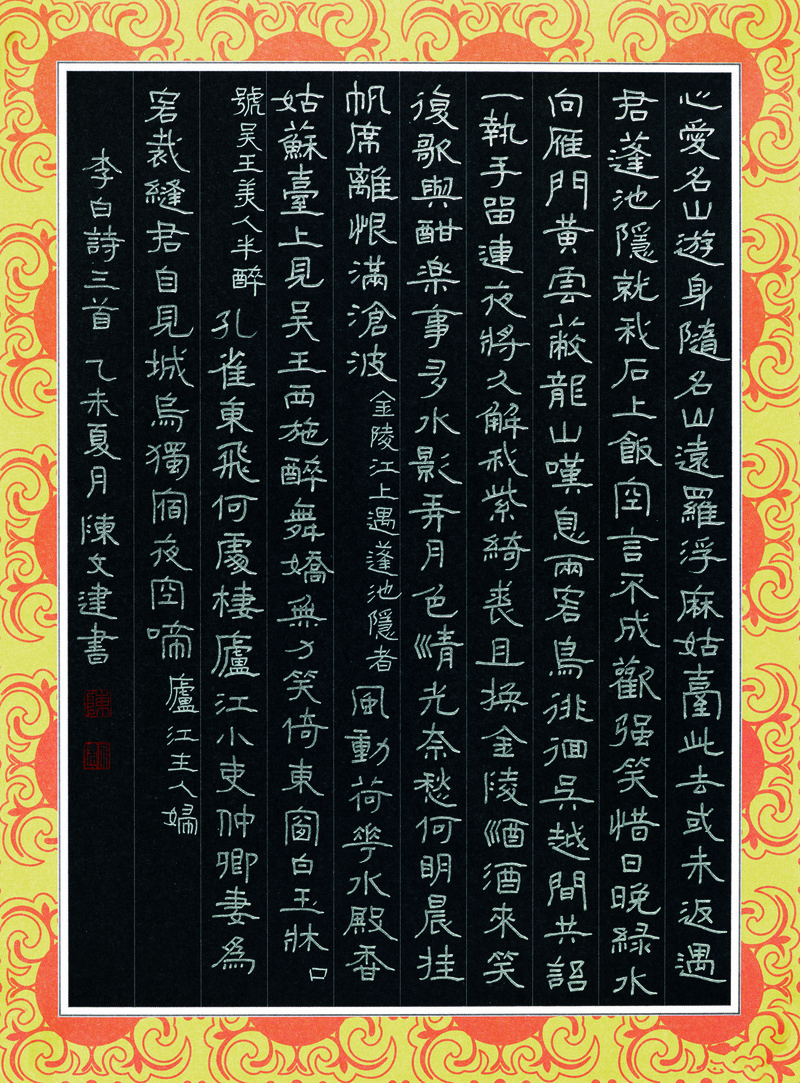 心愛名山遊身隨名山遠羅浮麻姑臺此去或未返遇
君蓬池隱就我石上飯空言不成歡强笑惜日晚緑水
向雁門黄雲蔽龍山嘆息兩客鳥徘徊吳越間共語
一執手留連夜將久解我紫綺裘且換金陵酒酒來笑
復歌興酣楽事多水影弄月色清光奈愁何明晨挂
帆席離恨滿滄波 金陵江上遇蓬池隱者 風動荷花水殿香
姑蘇臺上見吳王西施醉舞嬌無力笑倚東窗白玉牀 口
號吳王美人半醉 孔雀東飛何處棲廬江小吏仲卿妻爲
客裁縫君自見城烏獨宿夜空啼 廬江主人婦
李白詩三首 乙未夏月陳文建書